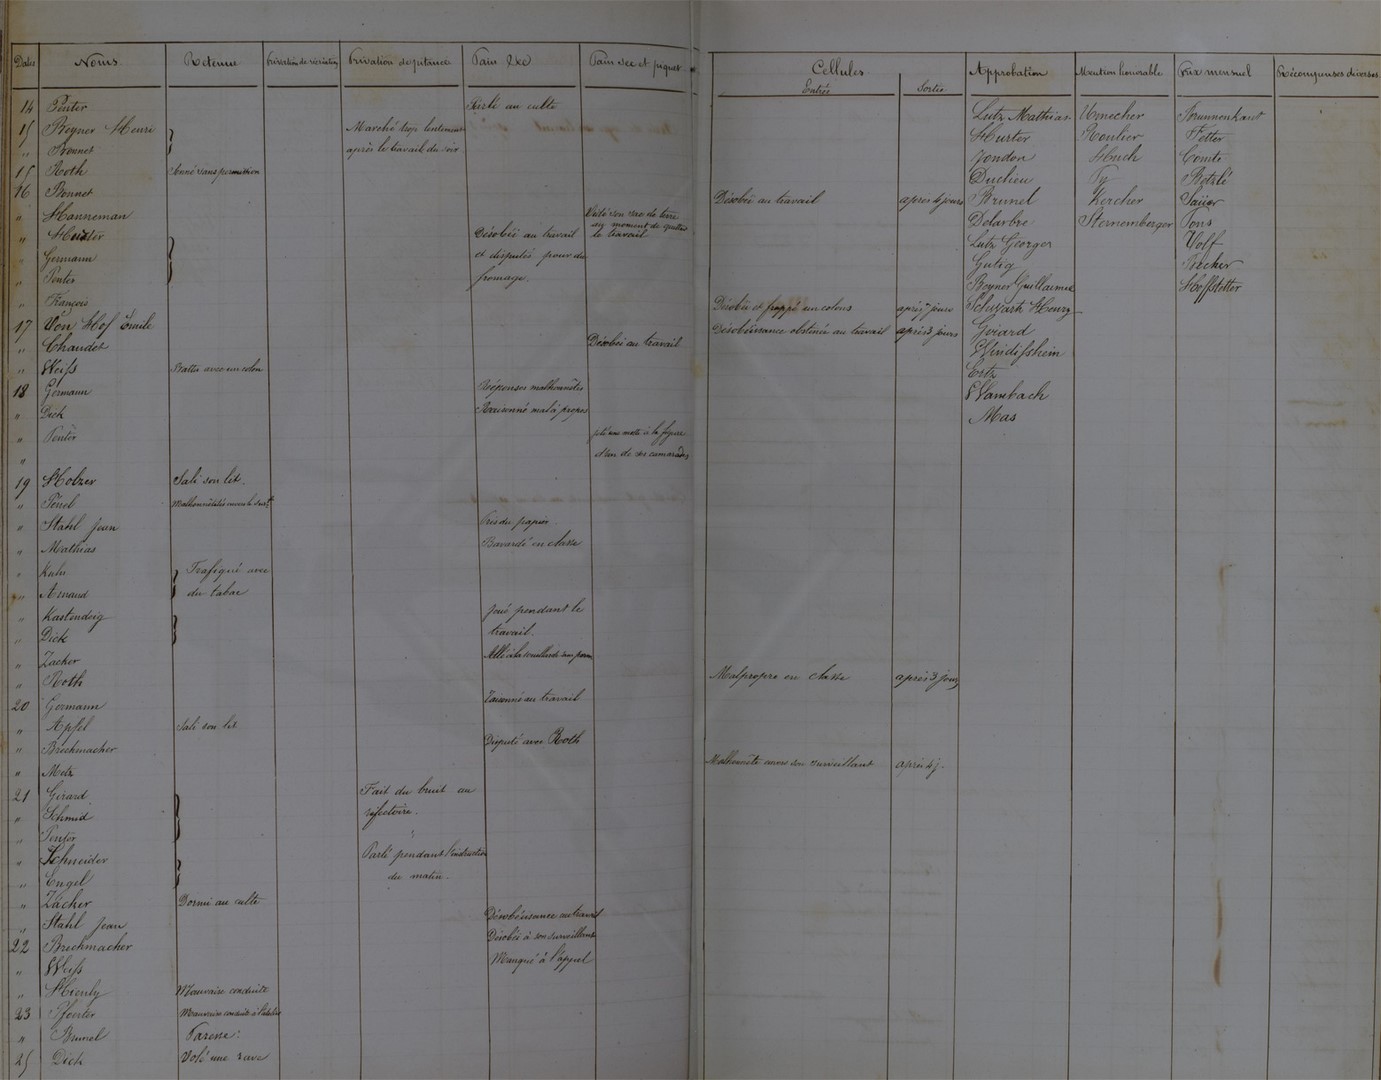 Dates Noms Retenue Privation de récréation Privation de pitance Pain sec Pain sec et piquet Cellules Approbation Mention honorable Prix mensuel Récompenses diverses
Entrée Sortie
14 Penter Parlé au culte Lutz Mathias Brunnenkant
15 Regner Henri Marché trop lentement Hurter Roulier Fetter
" Bonnet après le travail du soir Huch Comte
15 Roth sans permission Duclieu
16 Bonnet Désobéi au travail après 4 jours Brunel Kercher
" Hanneman Vidé son sac de terre au moment de quitter le travail Delarbre Sternemberger Pons
" Désobéi au travail Lutz Georges Volf
" Germann et disputé pour du Gutig Becher
" Penter fromage. Regner Guillaume Hoffstetter
" François Désobéi et frappé un colons après 7 jours Schwartz
17 Von Hof Emile Désobéissance obstinée au travail après 3 jours
" Chaudet Désobéi au travail Windisshein
" Weiss Battu avec un colon Ertz
18 Germann Réponses malhonnêtes Wambach
" Dick Raisonné mal à propos Mas
" Penter jeté une motte à la figure
" d'un de ses camarades
19 Holzer Sali son lit.
"
" Stahl Jean Pris du papier.
" Mathias Bavardé en classe
" Kuhn Trafiqué avec
" Arnaud du tabac
" Kastendeig Joué pendant le
" Dick travail.
" Zacher
" Roth Malpropre en classe après 3 jours
20 Germann Raisonné au travail
" Apfel Sali son lit
" Brechmacher Disputé avec Roth
" Metz Malhonnête envers son surveillant après 4 j.
21 Girard Fait du bruit au
" Schmid réfectoire.
" Penter
" Schneider Parlé pendant l'instruction
" Engel du matin.
" Zacher Dormi au culte
" Stahl Jean Désobéissance au travail
22 Brechmacher Désobéi à son surveillant
" Weiss Manqué à l'appel
" Hienly Mauvaise conduite
23 Pfenter Mauvaise conduite à l'atelier
" Brunel Paresse.
25 Dick Volé une rave